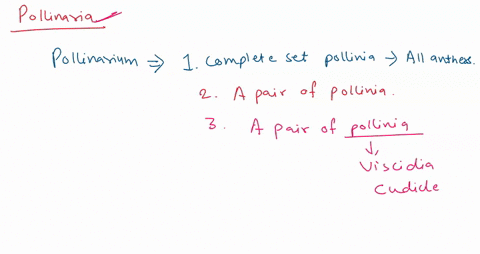 Pollinaria
Pollinarium ⇒ 1. Complete set pollinia → All anthers.
2. A pair of pollinia.
3. A pair of pollinia
↓
Viscidia
Cudicle